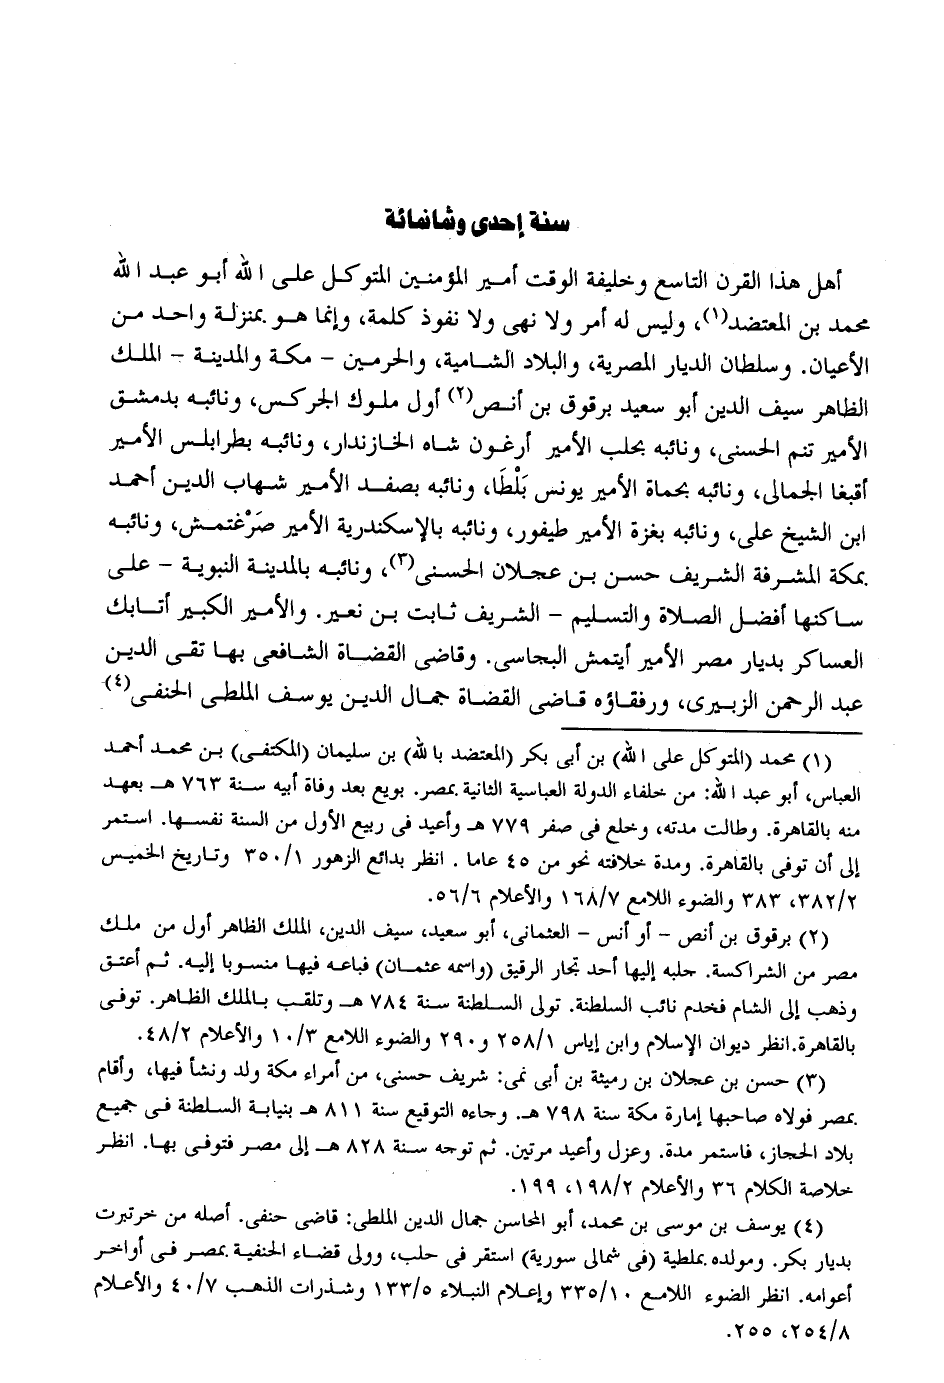 سنة إحدى وثمانمائة
أهل هذا القرن التاسع وخليفة الوقت أمير المؤمنين المتوكل على الله أبو عبد الله
محمد بن المعتضد(١)، وليس له أمر ولا نهى ولا نفوذ كلمة، وإنما هو بمنزلة واحد من
الأعيان. وسلطان الديار المصرية، والبلاد الشامية، والحرمين – مكة والمدينة – الملك
الظاهر سيف الدين أبو سعيد برقوق بن أنص(٢) أول ملوك الجركس، ونائبه بدمشق
الأمير تنم الحسنى، ونائبه بحلب الأمير أرغون شاه الخازندار، ونائبه بطرابلس الأمير
أقبغا الجمالى، ونائبه بحماة الأمير يونس بَلْطَا، ونائبه بصفد الأمير شهاب الدين أحمد
ابن الشيخ على، ونائبه بغزة الأمير طيفور، ونائبه بالإسكندرية الأمير صَرْغتمش، ونائبه
بمكة المشرفة الشريف حسن بن عجلان الحسنى(٣)، ونائبه بالمدينة النبوية – على
ساكنها أفضل الصلاة والتسليم – الشريف ثابت بن نعير. والأمير الكبير أتابك
العساكر بديار مصر الأمير أيتمش البجاسى. وقاضى القضاة الشافعى بها تقى الدين
عبد الرحمن الزبيرى، ورفقاؤه قاضى القضاة جمال الدين يوسف الملطى الحنفى(٤)
(١) محمد (المتوكل على الله) بن أبى بكر (المعتضد بالله) بن سليمان (المكتفى) بن محمد أحمد
العباس، أبو عبد الله: من خلفاء الدولة العباسية الثانية بمصر. بويع بعد وفاة أبيه سنة ٧٦٣ هـ بعهد
منه بالقاهرة. وطالت مدته، وخلع فى صفر ٧٧٩ هـ وأعيد فى ربيع الأول من السنة نفسها. استمر
إلى أن توفى بالقاهرة. ومدة خلافته نحو من ٤٥ عاما . انظر بدائع الزهور ٣٥٠/١ وتاريخ الخميس
٣٨٢/٢، ٣٨٣ والضوء اللامع ١٦٨/٧ والأعلام ٥٦/٦.
(٢) برقوق بن أنص – أو أنس – العثمانى، أبو سعيد، سيف الدين، الملك الظاهر أول من ملك
مصر من الشراكسة. جلبه إليها أحد تجار الرقيق (واسمه عثمان) فباعه فيها منسوبا إليه. ثم أعتق
وذهب إلى الشام فخدم نائب السلطنة. تولى السلطنة سنة ٧٨٤ هـ وتلقب بالملك الظاهر. توفى
بالقاهرة.انظر ديوان الإسلام وابن إياس ٢٥٨/١ و٢٩٠ والضوء اللامع ١٠/٣ والأعلام ٤٨/٢.
(٣) حسن بن عجلان بن رميثة بن أبى نمى: شريف حسنى، من أمراء مكة ولد ونشأ فيها، وأقام
بمصر فولاه صاحبها إمارة مكة سنة ٧٩٨ هـ. وجاءه التوقيع سنة ٨١١ هـ بنيابة السلطنة فى جميع
بلاد الحجاز، فاستمر مدة. وعزل وأعيد مرتين. ثم توجه سنة ٨٢٨ هـ إلى مصر فتوفى بها. انظر
خلاصة الكلام ٣٦ والأعلام ١٩٨/٢، ١٩٩.
(٤) يوسف بن موسى بن محمد، أبو المحاسن جمال الدين الملطى: قاضى حنفى. أصله من خرتبرت
بديار بكر. ومولده بملطية (فى شمالى سورية) استقر فى حلب، وولى قضاء الحنفية بمصر فى أواخر
أعوامه. انظر الضوء اللامع ٣٣٥/١٠ وإعلام النبلاء ١٣٣/٥ وشذرات الذهب ٤٠/٧ والأعلام
٢٥٤/٨، ٢٥٥.